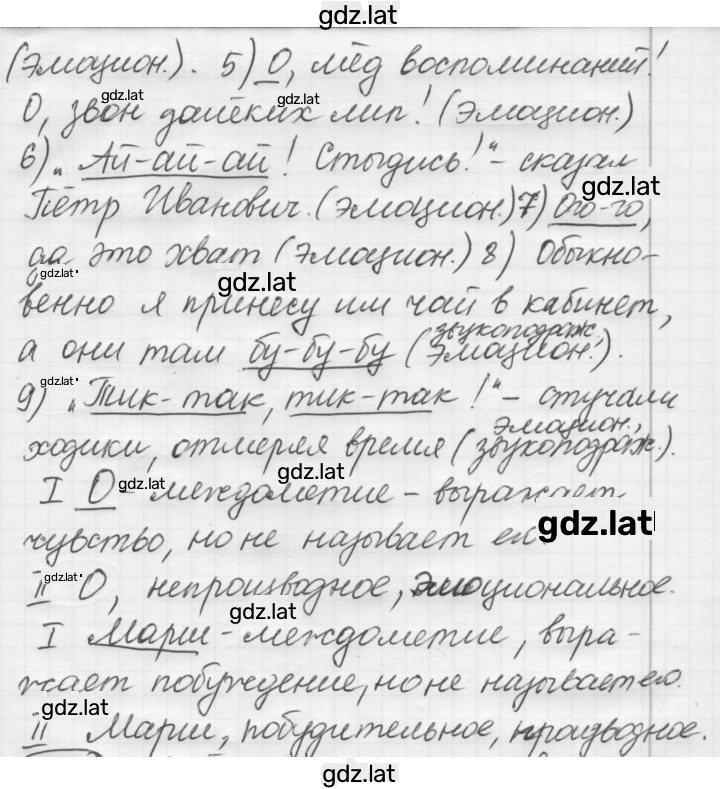 gdz.lat
(Эмоцион.). 5) О, мёд воспоминаний!
gdz.lat
О, звон далёких лип! (Эмоцион.)
6) „Ай-ай-ай! Стыдись!“ - сказал
gdz.lat
Пётр Иванович. (Эмоцион.) 7) Ого-го,
да это хват (Эмоцион.) 8) Обыкно-
gdz.lat
gdz.lat
венно я принесу им чай в кабинет,
звукоподраж,
а они там бу-бу-бу (Эмоцион.).
gdz.lat
9) „Тик-так, тик-так!“ - стучали
эмоцион.,
ходики, отмеряя время (звукоподраж.).
gdz.lat
I О - междометие - выражает
gdz.lat
gdz.lat
чувство, но не называет его
gdz.lat
II О, непроизводное, эмоциональное.
gdz.lat
I Марш - междометие, выра-
жает побуждение, но не называет его.
gdz.lat
II Марш, побудительное, производное.
gdz.lat